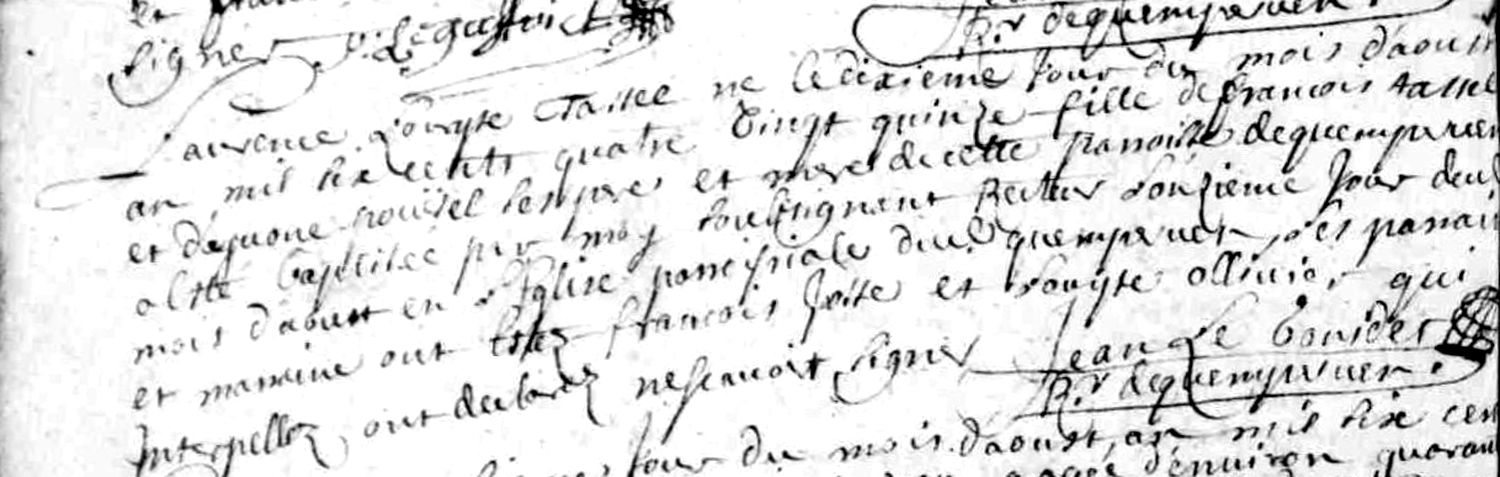 et
signer
R.r dequemperven.
Laurence Louyse Tassee ne le dixieme Jour du mois d'aoust
an mil six cents quatre vingt quinze fille de francois tassel
et de Juone nouüel ses pere et mere de cette parroisse dequemperven
a esté baptisee par moy soussignant Recteur l'onzieme Jour dud
mois d'aoust en l'Eglise parrochiale dud quemperven, les parrain
et marraine ont estez francois et Louyse ollivier qui
Interpellez ont declarez nescavoir signer Jean Le
R.r dequemperven.
Jour du mois daoust, an mil six cen
agee d'enuiron quaran